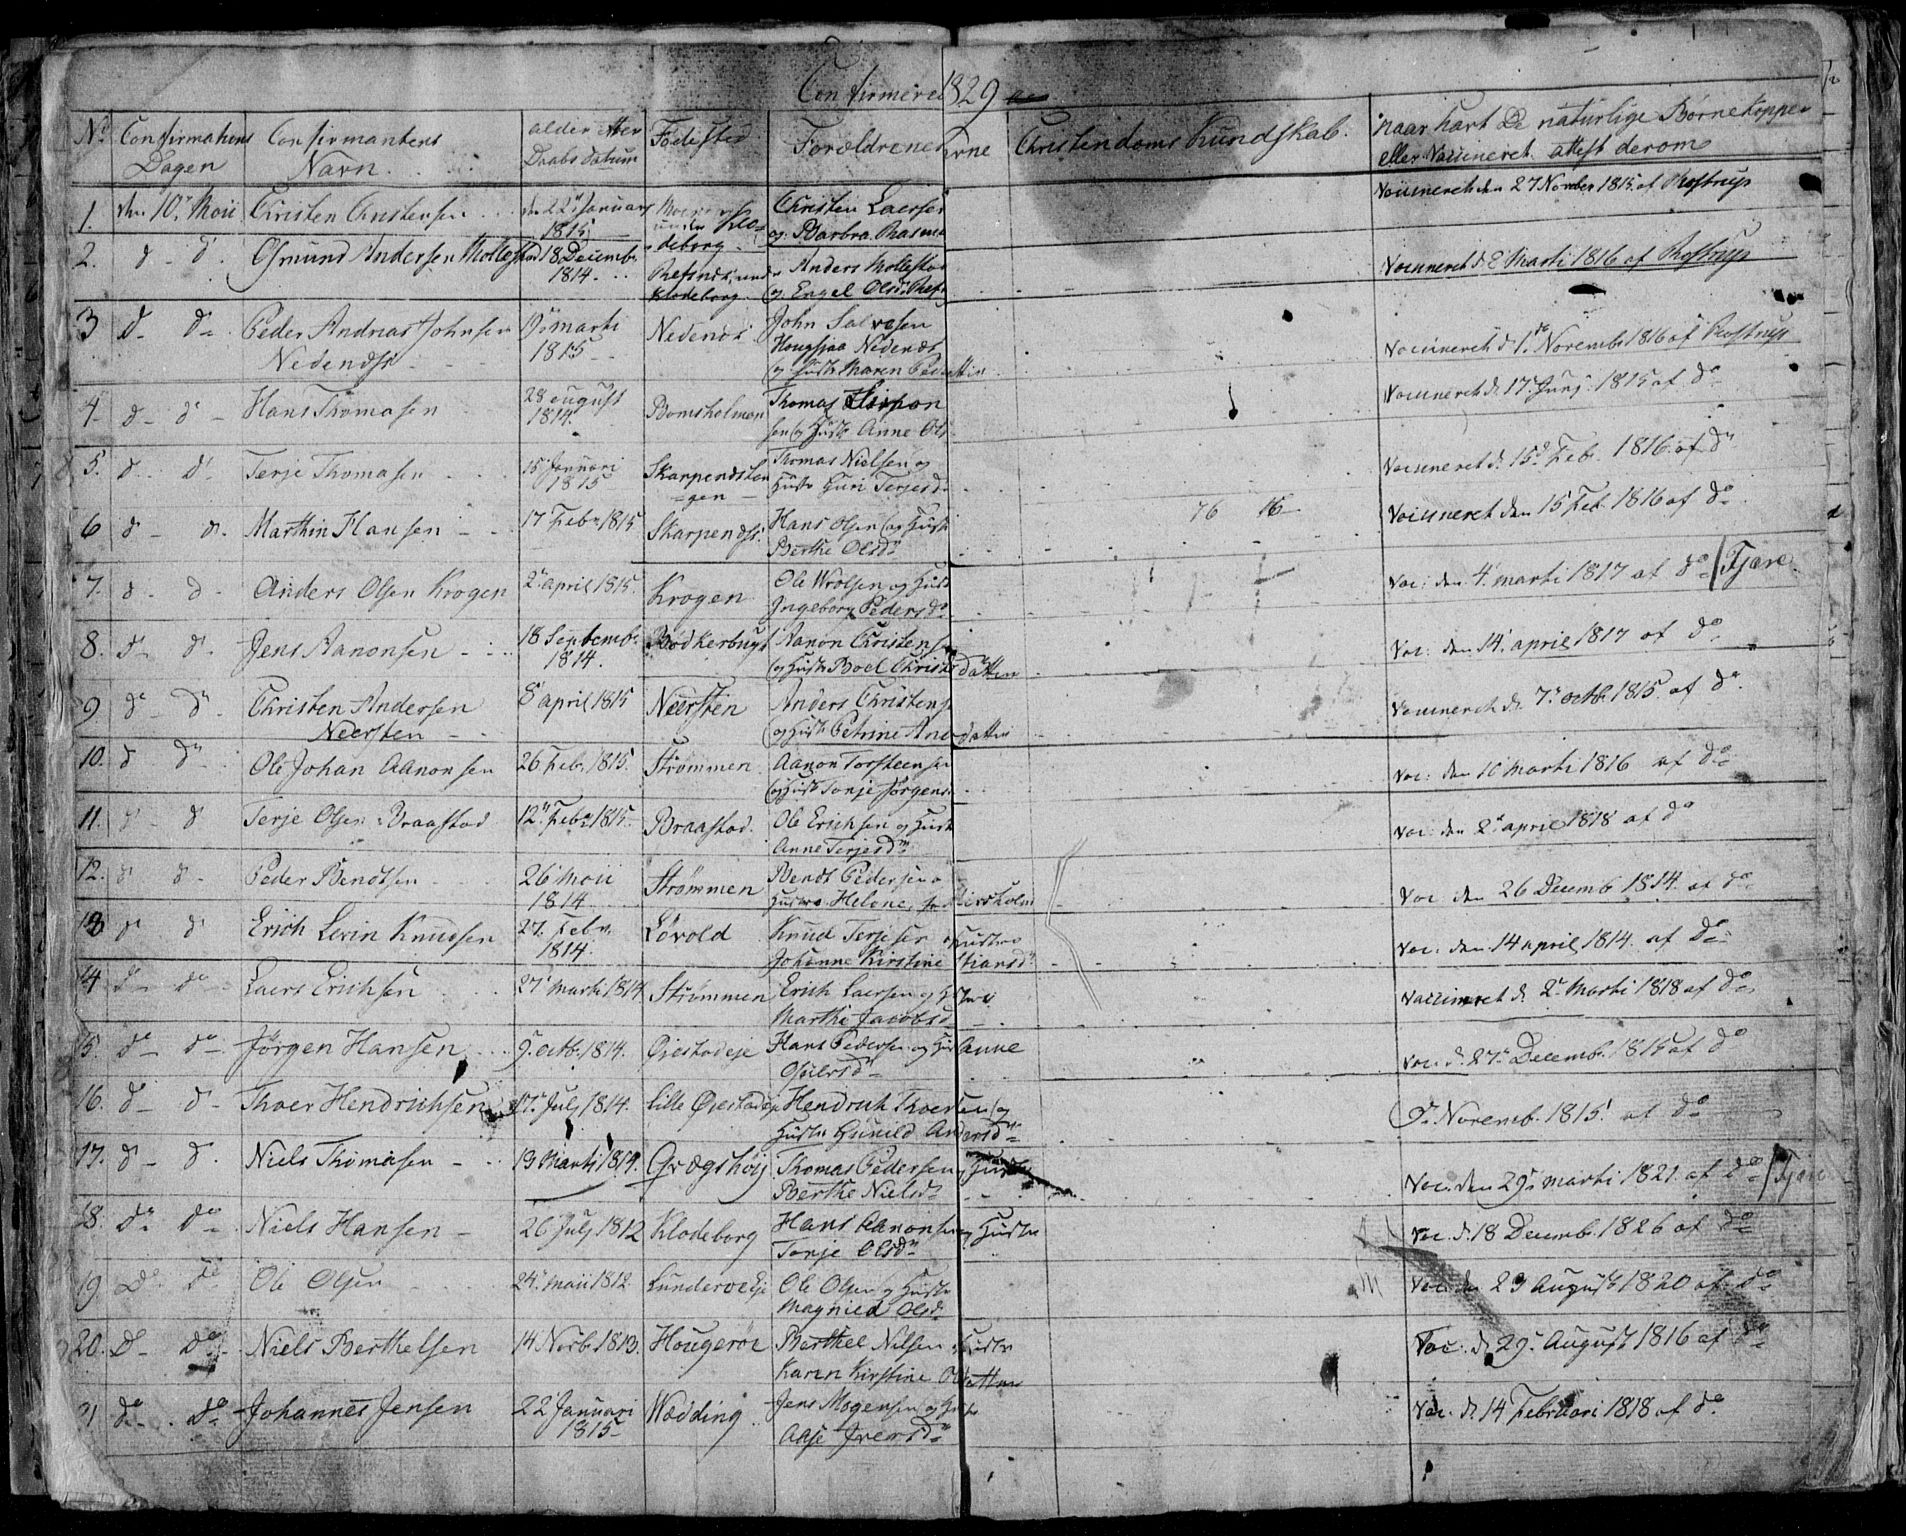 Confirmerede 1829
No Confirmations Dagen Confirmantens Navn alder etter Daabs datum Fødested Forældrenes Christendoms Kundskab. naar havt De naturlige Børnekopper eller Vaccineret attest derom
1. den 10de Maii Christen Christensen den 22de Januarii 1815 under Klodeborg Christen Laersen og Barbra Vaccineret den 27 November 1815 af Rostrup
2. d - d. Osmund Andersen Mollestad 18 Decembr 1814 - Refsnes under Klodeborg Anders Mollestad og Engel Olsd. Vaccineret d 2 Marti 1816 af Rostrup
3 d - do Peder Andreas Johnsen Nedenæs 19 marti 1815 Nedenes John Salvesen Nedenæs og Hustr Maren Pedersdatter Vaccineret d 1ste Novembr 1816 af Rostrup
4. d - do - Hans Thomasen 28 august 1814 Bomsholmen Thomas og Hustr Anne Ols Vaccineret d. 17 Junj 1815 af do
5. d - do - Terje Thomasen 15 Januari 1815 Skarpendstangen Thomas Nielsen og Hustr Guri Terjesd Vaccineret d. 15de Feb. 1816 af do
6 d - d. Marthin Hansen - 17 Febr 1815 Skarpendss. Hans Olsen og Hustr Berthe Olsdr 76 16 Vaccineret den 15 Feb 1816 af do
7. d - d - Anders Olsen Krogen 2 april 1815. Krogen Ole Wrolsen og Hustr Ingeborg Pedersdr Vac: den 4 marti 1817 af do / Fjære.
8. d - d. Jens Aanonsen - 18 Septembr 1814. Bødkerbugt Aanon Christensen og Hustr Boel Christensdatter Vac: den 14 april 1817 af do
9 do - do. Christen Andersen Neersten - 8 april 1815 Neersten Anders Christens og Hustr Petrine Andersdatter Vaccineret d. 7 octb. 1815. af do.
10. d do Ole Johan Aanonsen 26 Feb. 1815. Strømmen Aanon Torsteensen og Hustr Tonje Jørgens Vac: den 10 Marti 1816 af do
11. d - d Terje Olsen Braastad 12 Febr 1815. Braastad. Ole Erichsen og Hustr Anne Terjesdr Vac: den 2 april 1818 af do
12. d d - Peder Bendtsen 26 Maii 1814. Strømmen Bendt Pedersen og Hustro Helene Vac: den 26 Decemb 1814. af do
13 d d Erich Levin Knudsen 27. Febr. 1814. Løvold Knud Terjesen og Hustro Johanne Kirstine Vac: den 14 april 1814. af do
14 d - do Laers Erichsen 27 Marti 1814 Strømmen Erich Laersen og Hustru Marthe Jacobsd Vaccineret d 2 Marti 1818 af do
15. do - do - Jørgen Hansen 9. octb. 1814. Øiestadeje Hans Pedersen og Hustr Anne Vac. d. 27 Decemb. 1815 af do
16. do - d - Thoer Hendrichsen 17. Julj 1814. Lille Øiestadeje Hendrich Thoersen og Hustr Gunild Andersdr 9de Novemb. 1815 af do
17. d - d. Niels Thomasen - 13 Marti 1814. Grægshøij Thomas Pedersen og Hustru Berthe Nielsd - Vac. den 29 marti 1821. af do / Fjære
18. do do Niels Hansen - 26 Julj 1812 Klodeborg Hans Aanonsen og Hustru Tonje Olsdr Vac. d. 18 Decemb. 1826 af do
19 Do do Ole Olsen 24 Maii 1812 Lundervoe Eje Ole Olsen og Hustr Magnild Olsd. Vac. den 23 August 1820 af do
20. D - do - Niels Berthelsen 14 Novb. 1813. Hougerøe Berthel Nilsen Hustr Karen Kirstine Olsdatter Vac. d. 29. August 1816 af do
21 do - do - Johannes Jensen 22 Januari 1815 Wædding Jens Mogensen og Hustr Aase Iversdr Vac. d. 14 Februari 1818 af do